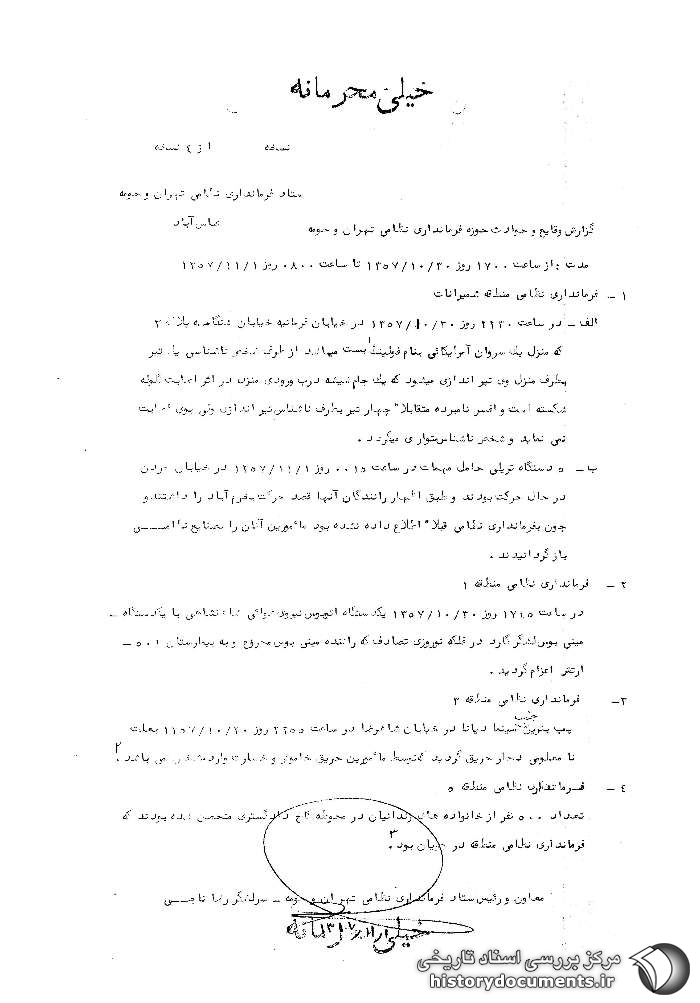 خیلی محرمانه
نسخه از ٤ نسخه
ستاد فرمانداری نظامی تهران و حومه
عباس آباد
گزارش وقایع و حوادث حوزه فرمانداری نظامی تهران و حومه
مدت : از ساعت ١٧٠٠ روز ١٣٥٧/١٠/٣٠ تا ساعت ٠٨٠٠ روز ١٣٥٧/١١/١
١ – فرمانداری نظامی منطقه شمیرانات
الف – در ساعت ٢٢٣٠ روز ١٣٥٧/١٠/٣٠ در خیابان فرمانیه خیابان پلاک ٢
که منزل یک سروان آمریکائی بنام میباشد از طرف شخص ناشناسی یک تیر
بطرف منزل وی تیر اندازی میشود که یک جام شیشه درب ورودی منزل در اثر اصابت گلوله
شکسته است و افسر نامبرده متقابلا" چهار تیر بطرف ناشناس تیر اندازی ولی بوی اصابت
نمی نماید و شخص ناشناس متواری میگردد .
ب – ٥ دستگاه تریلی حامل مهمات در ساعت ٠٠١٥ روز ١٣٥٧/١١/١ در خیابان
در حال حرکت بودند و طبق اظهار رانندگان آنها قصد حرکت بخرم آباد را داشتند و
چون بفرمانداری نظامی قبلا" اطلاع داده نشده بود مامورین آنان را بصنایع نظامی
باز گردانیدند .
٢ – فرمانداری نظامی منطقه ١
در ساعت ١٧٤٥ روز ١٣٥٧/١٠/٣٠ یکدستگاه اتوبوس نیروی هوائی شاهنشاهی با یکدستگاه –
مینی بوس لشگر گارد در فلکه نوروزی تصادف که راننده مینی بوس مجروح و به بیمارستان ٥٠١ –
ارتش اعزام گردید .
٣– فرمانداری نظامی منطقه ٣
پمپ بنزین جنب سینما دیانا در خیابان شاهرضا در ساعت ٢٢٥٥ روز ١٣٥٧/١٠/٣٠ بعلت
نا معلومی دچار حریق گردید که توسط مامورین حریق خاموش و خسارت وارده می باشد . ٢
٤ – فرمانداری نظامی منطقه ٥
تعداد ٥٠٠ نفر از خانواده های زندانیان در محوطه کاخ دادگستری متحصن شده بودند که
فرمانداری نظامی منطقه در جریان بود . ٣
معاون و رئیس ستاد فرمانداری نظامی تهران و حومه – سرلشگر رضا ناجی
خیلی محرمانه
مرکز بررسی اسناد تاریخی
historydocuments.ir